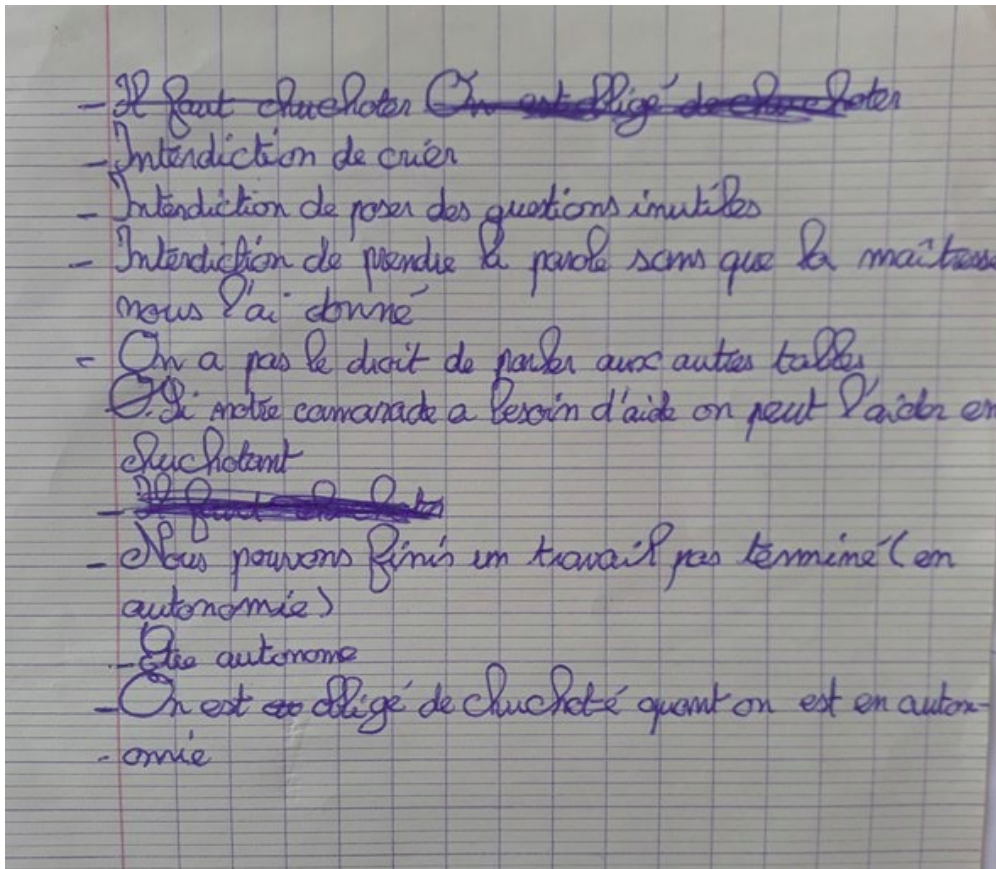 - Il faut chuchoter On est obligé de chuchoter
- Interdiction de crier
- Interdiction de poser des questions inutiles
- Interdiction de prendre la parole sans que la maîtresse
nous l'ai donné
- On a pas le droit de parler aux autres tables
Si notre camarade a besoin d'aide on peut l'aider en
chuchotant
- Il faut
- Nous pouvons finir un travail pas terminé (en
autonomie)
- Être autonome
- On est obligé de chuchoté quant on est en auton-
- omie